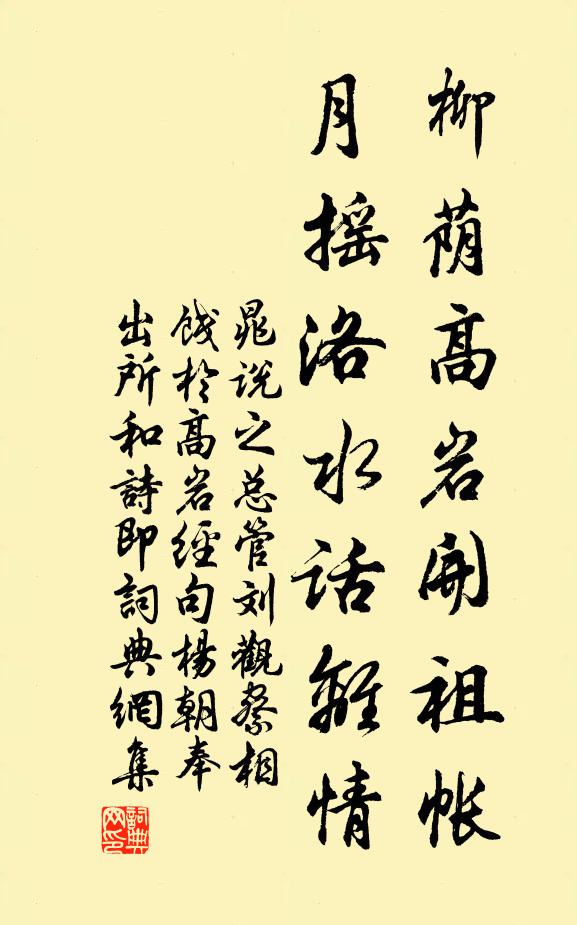 柳荫高岩開祖帐
月摇洛水话離情
晁说之总管刘觀察相
饯於高岩經句楊朝奉
出所和詩即詞典網集
詞典网印